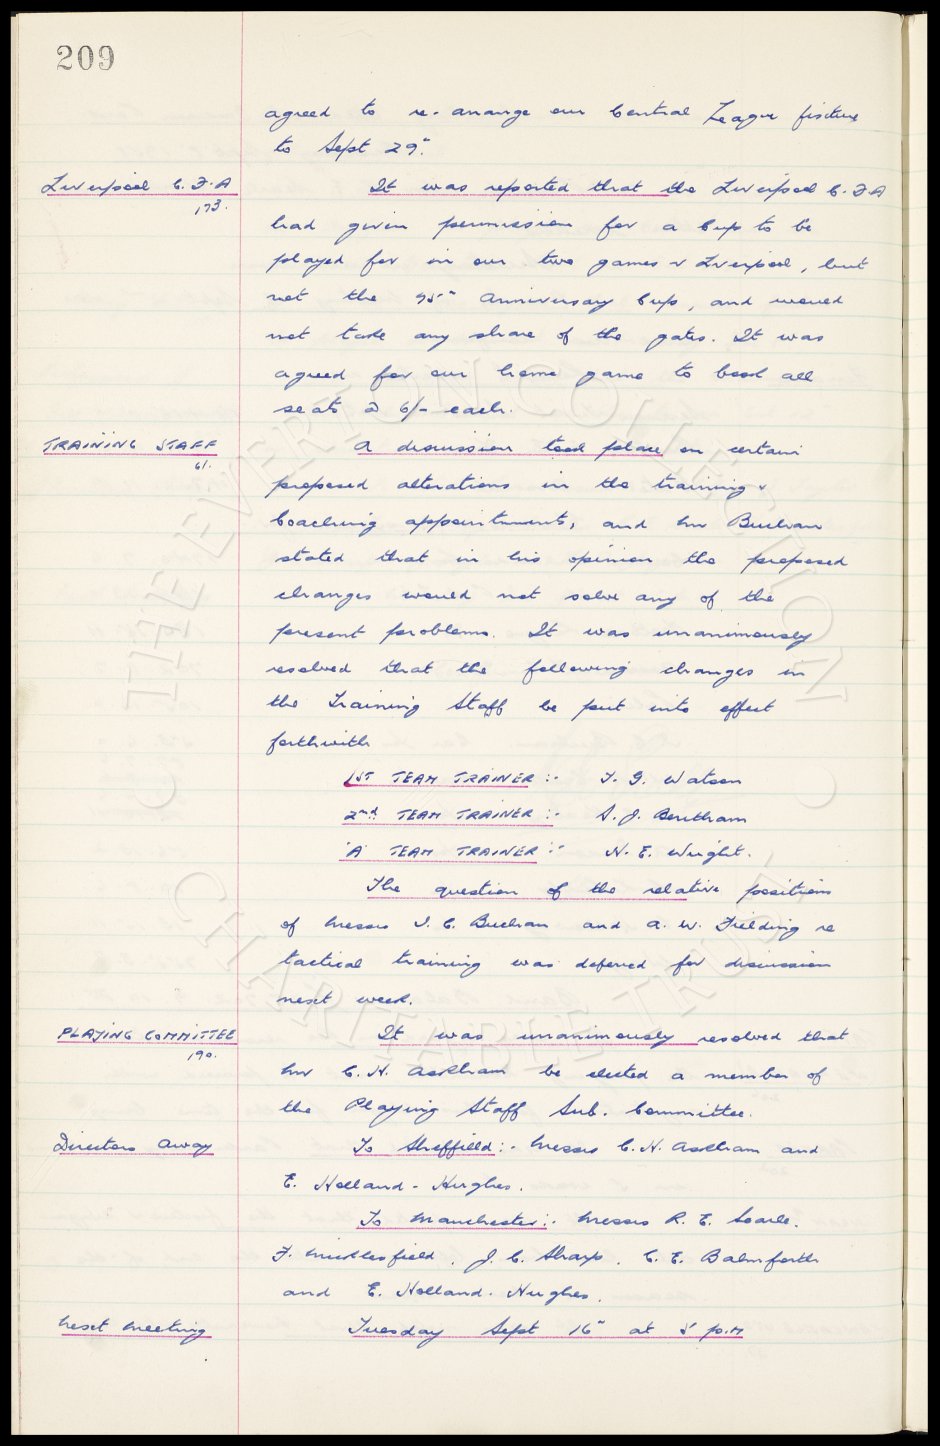 209
agreed to re-arrange our Central League fixture
to Sept 29".
Liverpool C.F.A It was reported that the Liverpool C.F.A
173.
had given permission for a Cup to be
played for in our two games v Liverpool, but
not the 75" Anniversary Cup, and would
not take any share of the gates. It was
agreed for our home game to book all
seats @ 6/- each.
TRAINING STAFF A discussion took place on certain
61.
proposed alterations in the training &
Coaching appointments, and Mr Buchan
stated that in his opinion the proposed
changes would not solve any of the
present problems. It was unanimously
resolved that the following changes in
the Training Staff be put into effect
forthwith
1ST TEAM TRAINER :- T. G. Watson
2nd TEAM TRAINER :- S. J. Bentham
'A' TEAM TRAINER :- H. E. Wright.
The question of the relative positions
of Messrs I. C. Buchan and A. W. Fielding re
tactical training was deferred for discussion
next week.
PLAYING COMMITTEE It was unanimously resolved that
190.
Mr C. H. Askham be elected a member of
the Playing Staff Sub. Committee.
Directors Away To Sheffield :- Messrs C. H. Askham and
E. Holland-Hughes.
To Manchester :- Messrs R. E. Searle.
F. Micklesfield, J. C. Sharp, C. E. Balmforth
and E. Holland-Hughes.
Next Meeting Tuesday Sept 16" at 5 p.m
© THE EVERTON COLLECTION
CHARITABLE TRUST